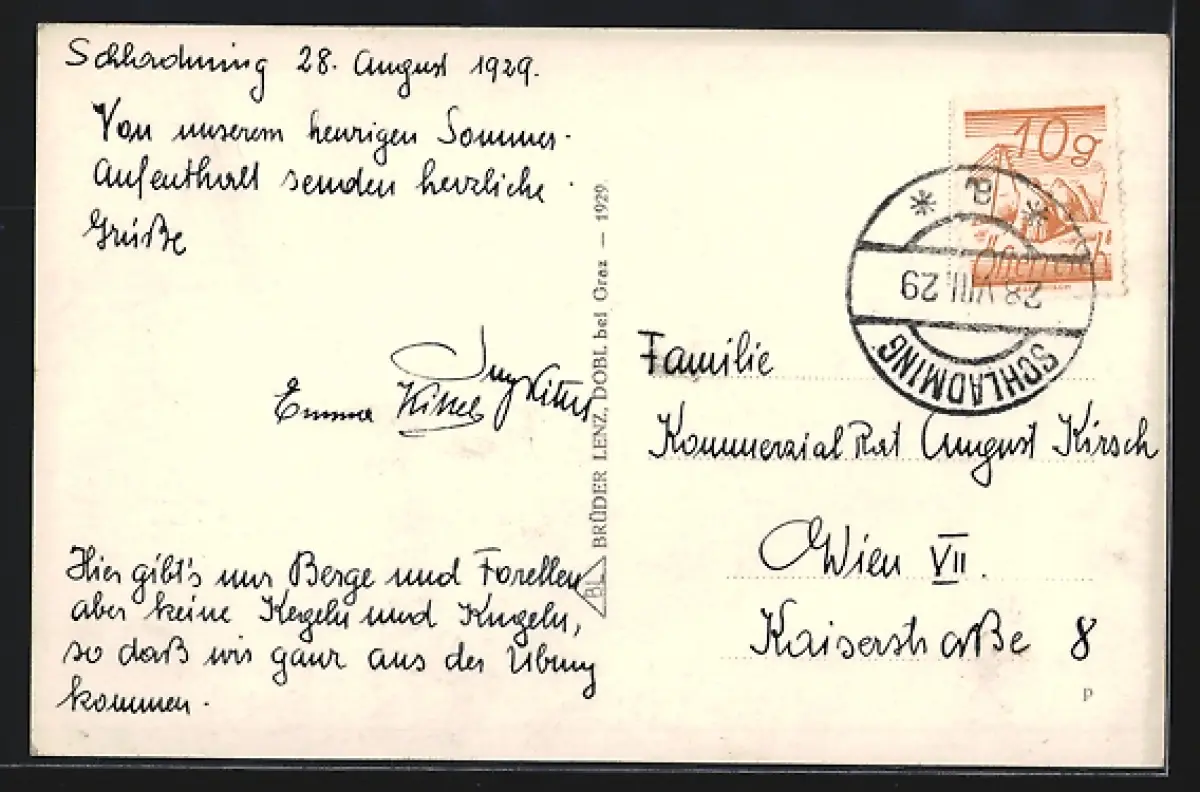 Schladming 28. August 1929.
Von unserem heurigen Sommer-
Aufenthalt senden herzliche
Grüße
Emma Kittel
Hier gibt's nur Berge und Forellen
aber keine Kegeln und Kugeln,
so daß wir ganz aus der Übung
kommen.
BRÜDER LENZ, DOBL bei Graz — 1929.
BL
10g
Österreich
* P *
28 VIII 29
SCHLADMING
Familie
Kommerzial Rat August Kirsch
Wien VII.
Kaiserstraße 8
P